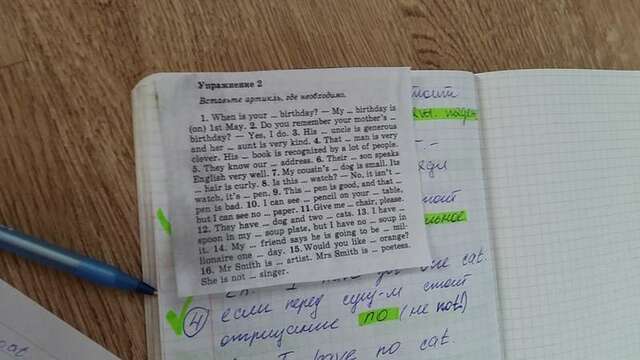 Упражнение 2
Вставьте артикль, где необходимо.
1. When is your _ birthday? _ My _ birthday is
(on) 1st May. 2. Do you remember your mother's _
birthday? _ Yes, I do. 3. His _ uncle is generous
and her _ aunt is very kind. 4. That _ man is very
clever. His _ book is recognized by a lot of people.
5. They know our _ address. 6. Their _ son speaks
English very well. 7. My cousin's _ dog is small. Its
_ hair is curly. 8. Is this _ watch? _ No, it isn't _
watch, it's _ pen. 9. This _ pen is good, and that _
pen is bad. 10. I can see _ pencil on your _ table,
but I can see no _ paper. 11. Give me _ chair, please.
12. They have _ dog and two _ cats. 13. I have _
spoon in my _ soup plate, but I have no _ soup in
it. 14. My _ friend says he is going to be _ mil-
lionaire one _ day. 15. Would you like _ orange?
16. Mr Smith is _ artist, Mrs Smith is _ poetess.
She is not _ singer.
one cat.
4) если перед сущ-м стоит
отрицание no (не not!)
I have no cat